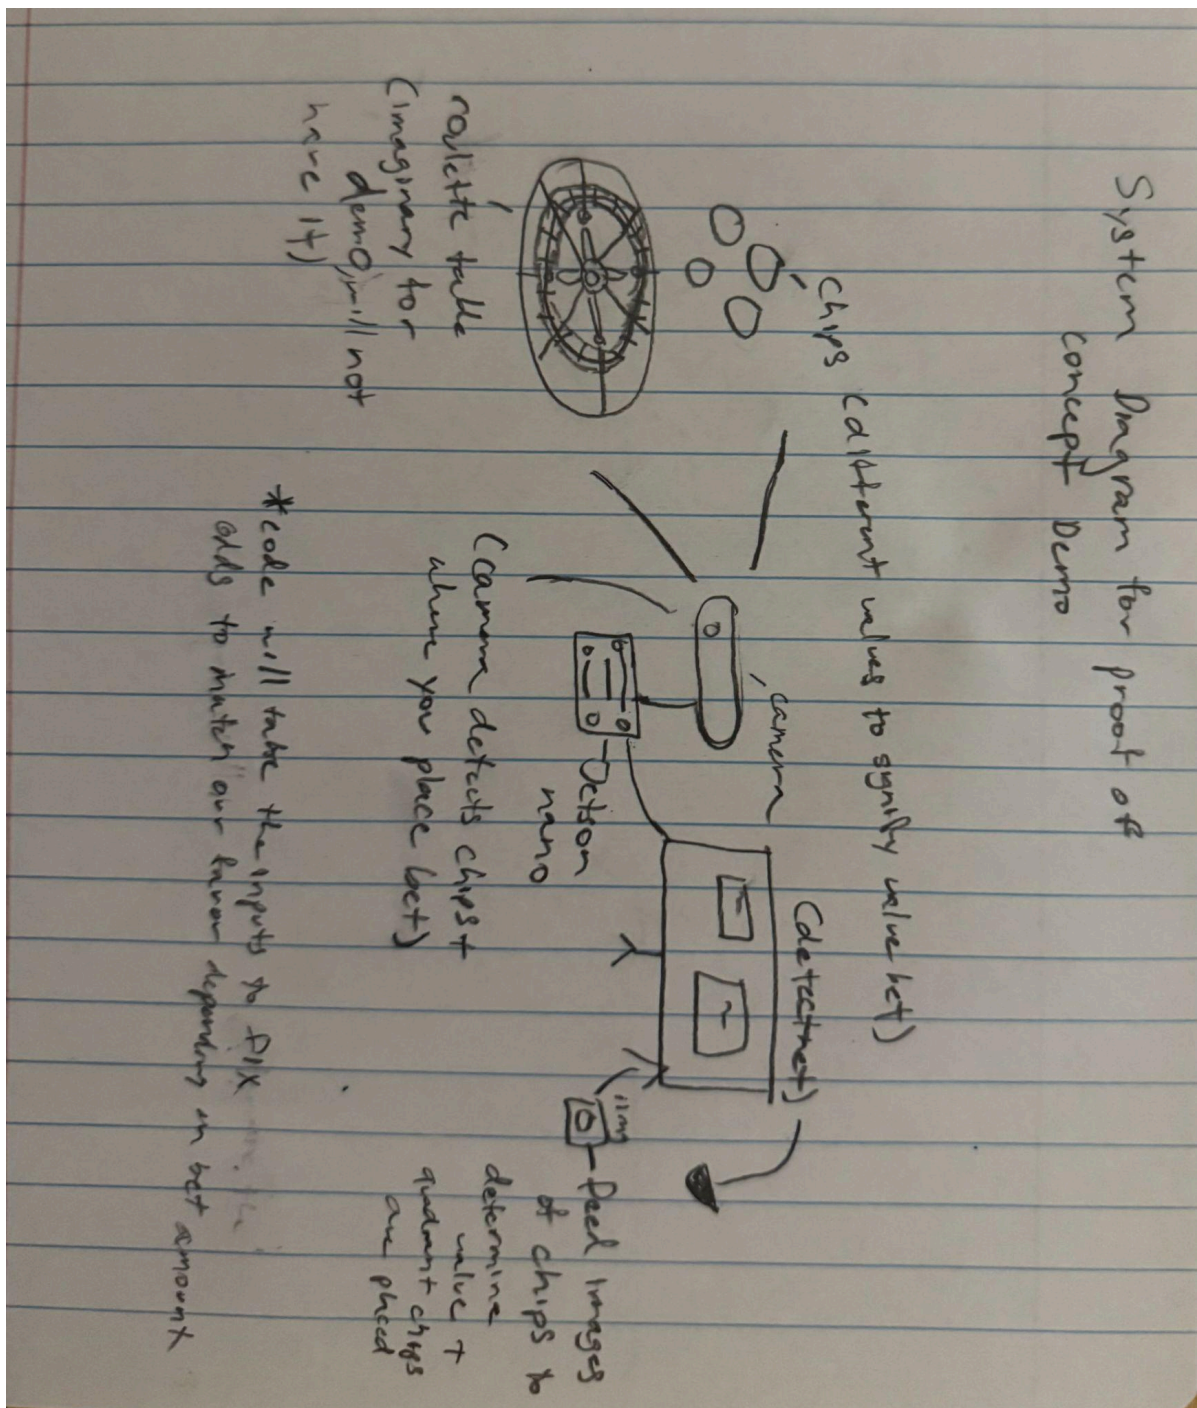 System Diagram for proof of
concept Demo
chips (different values to signify value bet)
roulette table
(imaginary to
demo, will not
have it)
camera
(detectnet)
Jetson
nano
(camera detects chips +
where you place bet)
feed images
of chips to
determine
value +
quadrant chips
are placed
*code will take the inputs to fix
odds to match our favor depending on bet amount